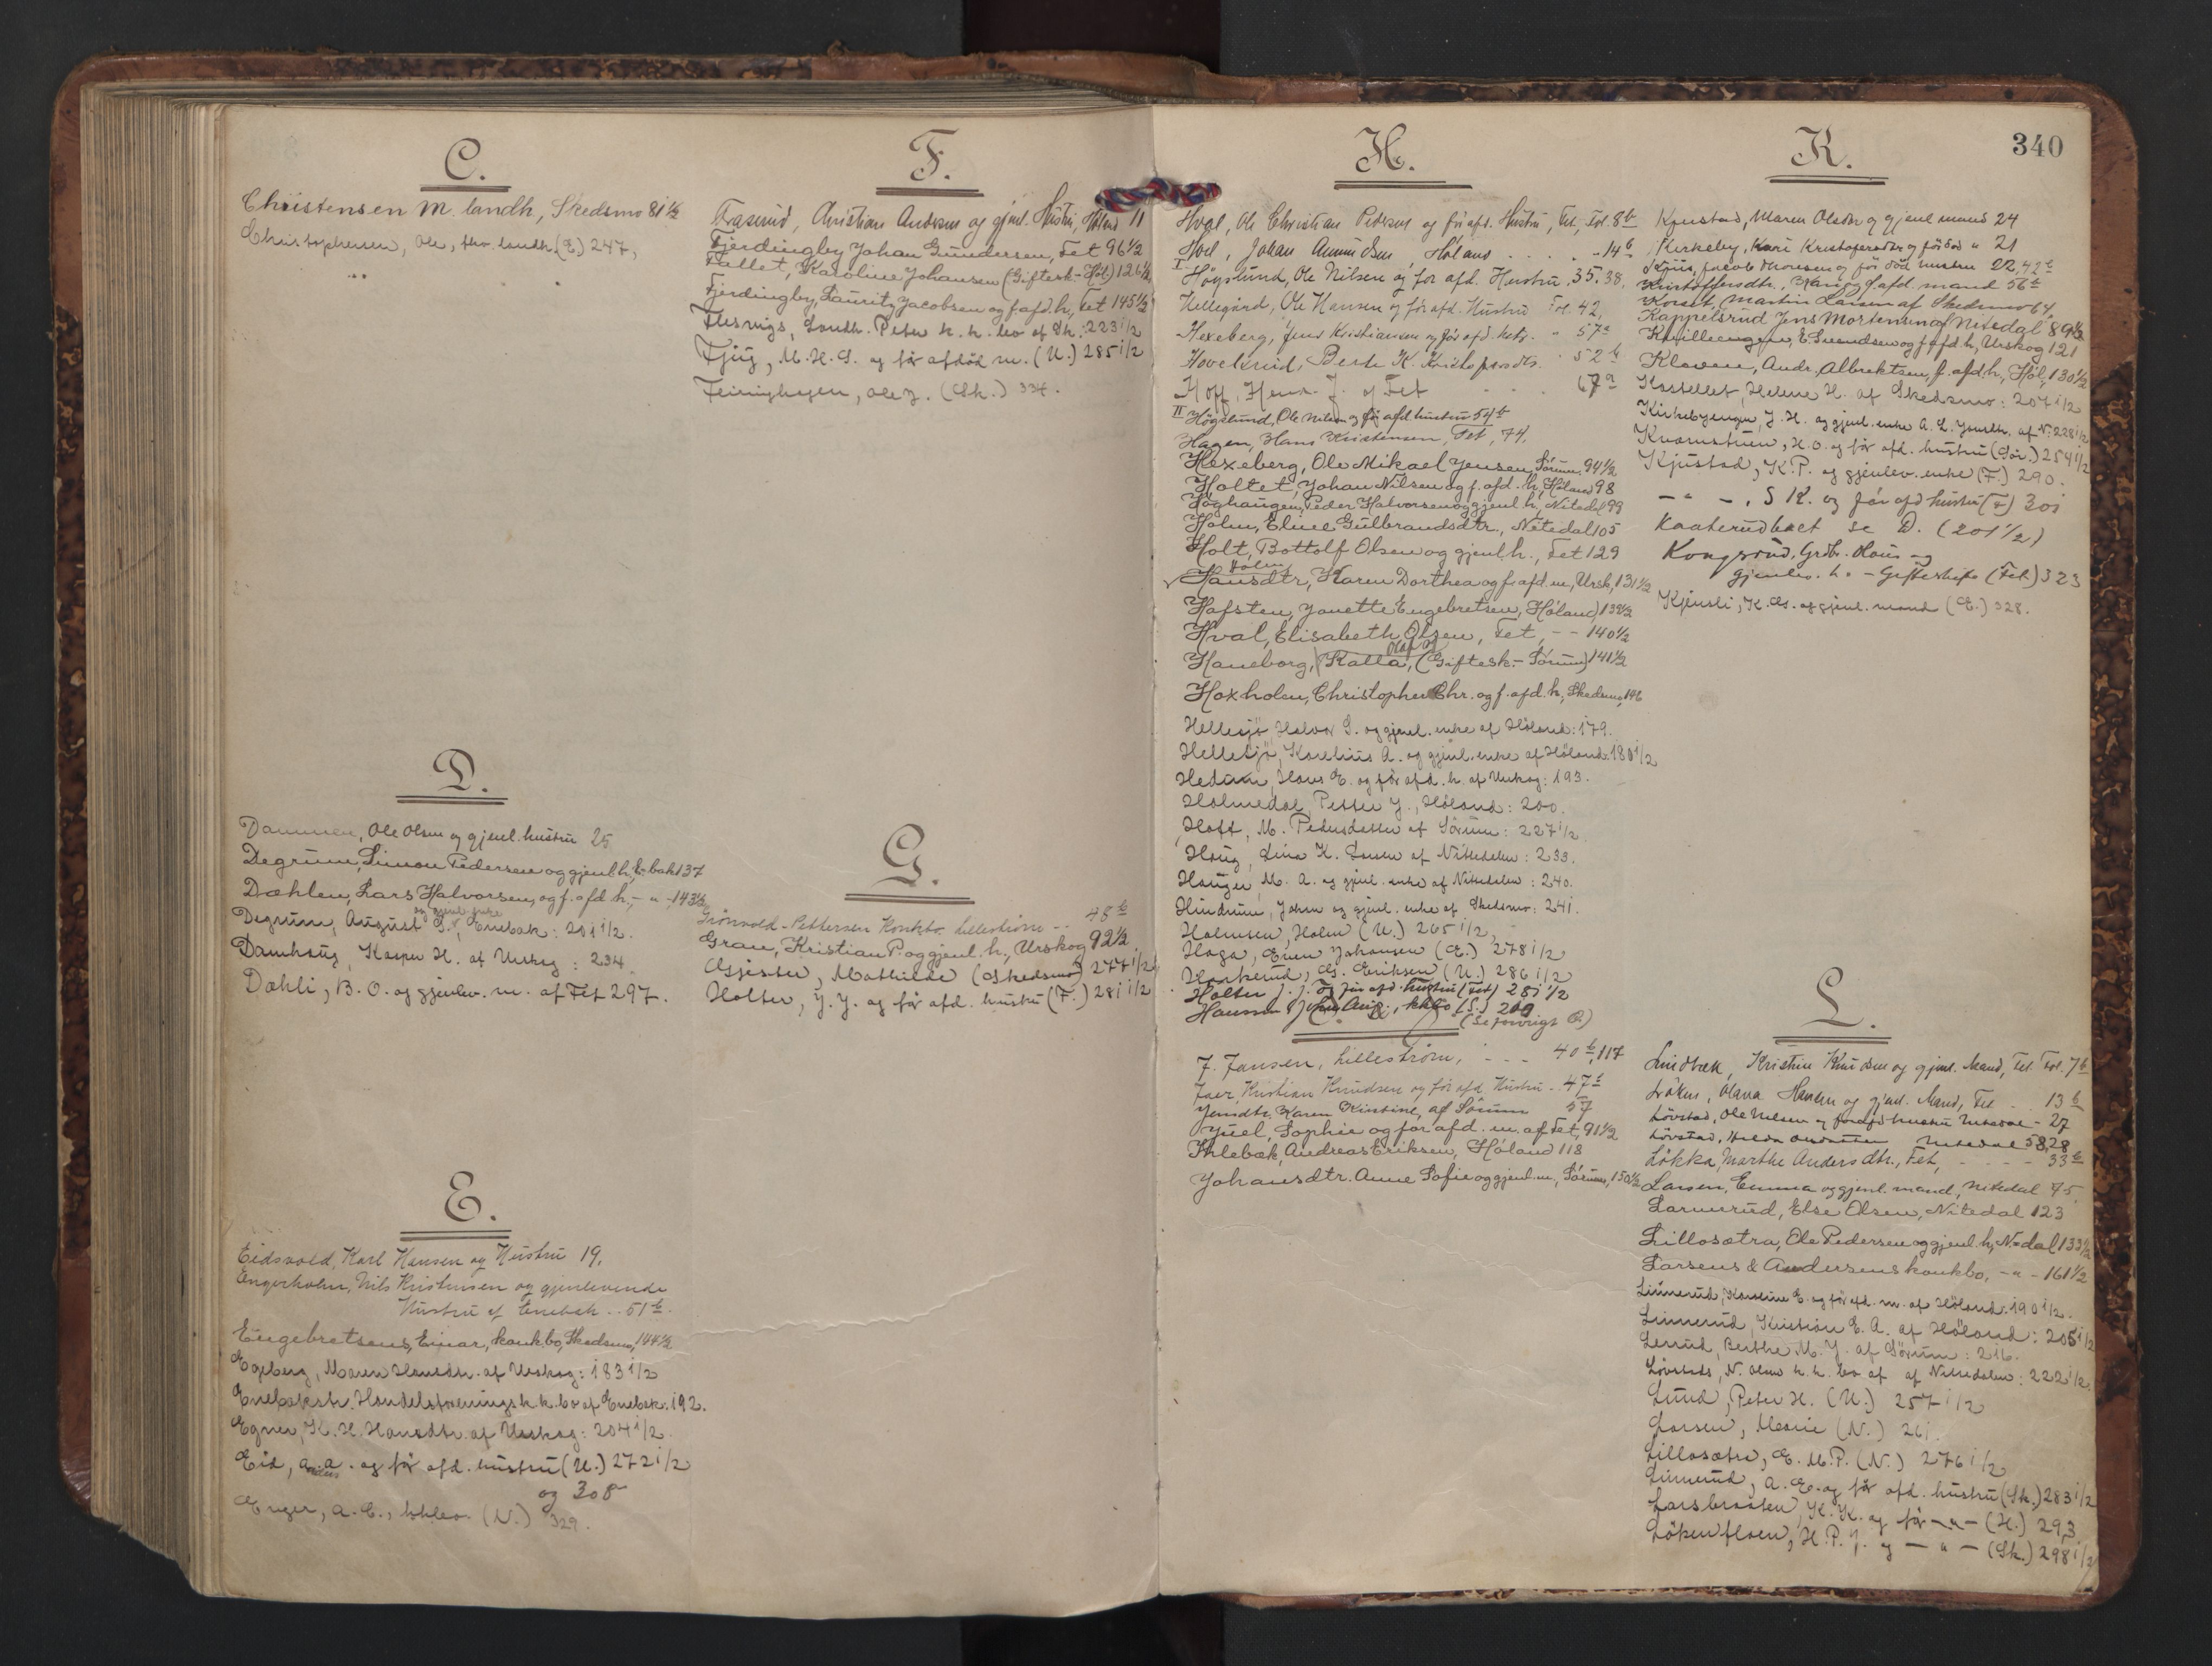 C.
Christensen M. landh, Skedsmo 81 1/2
Christophersen, Ole, landh. (E.) 247,
D.
Dammen, Ole Olsen og gjenl. hustru 25
Degrum, Simon Pedersen og gjenl. h., E-bak 137
Dæhlen, Lars Halvorsen, og f. afd. h., - " - 143 1/2
og gjenl. enke
Degrum, August S., Enebak: 201 1/2.
Damhaug, Kasper H. af Urskog: 234
Dæhli, B. O. og gjenlev. m. af Fet 297.
E.
Eidsvold, Karl Hansen og Hustru 19,
Engerholm, Nils Kristensen og gjenlevende
Hustru af Enebak .. 51 b.
Engebretsens, Einar, konkbo, Skedsmo, 144 1/2
Egeberg, Maren Hansdtr. af Urskog: 183 1/2
Enebakstr. Handelsforenings k. k. bo af Enebak: 192.
Egner, K. H. Hansdtr. af Urskog: 204 1/2
Eid, A. A. og før afd. hustru (U.) 272 1/2
og 308
Enger, A. E., (N.) 329.
F.
Fraserud, Christian Andersen og gjenl. Hustru, Høland 11
Fjerdingby Johan Gundersen, Fet 96 1/2
Fallet, Karoline Johansen (Giftesk. - Høl) 126 1/2
Fjerdingby, Lauritz Jacobsen og f. afd. h., Fet 145 1/2
Flesvigs, Landh. Peter k. k. bo af Sk.: 223 1/2
Fjug, M. H. S. og før afdød m. (U.) 285 1/2
Feiringhagen, Ole J. (Sk.) 334.
G.
Grønvold-Pettersen Konkbo. Lillestrøm -- 48 b
Grau, Kristian P. og gjenl. h., Urskog 92 1/2
Gjester, Mathilde (Skedsmo) 277 1/2
Holter, J. J. og før afd. hustru (F.) 281 1/2
H.
Hval, Ole Christian Pedersen og før afd. Hustru, Fet, Fol. 8 b
Hvel, Johan Amundsen, Høland . . . . 14 b
I Høgslund, Ole Nilsen og for afd. Hustru, 35. 38,
Hellegård, Ole Hansen og før afd. Hustru Fol. 42,
Hexeberg, Jens Kristiansen og før afd. " 57 a
Hovelsrud, Berte K. Kristofersdtr. " 52 b
Hoff, Henr. J. af Fet 67 a
II Høgslund, Ole Nilsen og før afd hustru 54 b
Hagen, Hans Kristensen, Fet, 74.
Hexeberg, Ole Mikael Jensen, Sørum. 94 1/2
Holtet, Johan Nilsen og f. afd. h, Høland 98
Høghaugen, Peder Halvorsen og gjenl h, Nitedal 99
Holm, Eline Gulbrandsdtr., Nitedal 105
Holt, Bottolf Olsen og gjenl. h., Fet 129
Holm
Hansdtr, Karen Dorthea og f. afd. m, Ursk, 131 1/2
Hafsten, Janette Engebretsen, Høland, 139 1/2
Hval, Elisabeth Olsen, Fet, - - 140 1/2
Olaf og
Haneborg, Kalla, (Giftesk. - Sørum) 141 1/2
Hoxholm, Christopher Chr. og f. afd. h, Skedsmo, 146
Hellesjø Halvor S. og gjenl. enke af Høland: 179.
Hellesjø, Karelius A. og gjenl. enke af Høland. 180 1/2
Hedum, Hans E. og før afd. h. af Urskog: 193.
Holmedal Petter J., Høland: 200.
Hoff, M. Pedersdatter af Sørum: 227 1/2
Haug, Lina K. Larsen af Nittedalen: 233.
Haugen, M. A. og gjenl. enke af Nittedalen: 240.
Hindrum, Johan og gjenl. enke af Skedsmo: 241.
Holmsen, Holm (U.) 265 1/2,
Haga, Even Johansen (E.) 278 1/2
Harkerud, Gs. Eriksen (U.) 286 1/2
Holter J. J. og før afd. hustru (Fet) 281 1/2
Hansen, Aug., kkbo (S.) 209
(Se forvrigt )
J. Jansen, Lillestrøm, - - - 40 b, 117
Joer, Kristian Knudsen og før afd. Hustru .. 47 b
Jensdtr. Karen Kirstine, af Sørum 57
Juel, Sophie og for afd. m. af Fet, 91 1/2
Ihlebæk, Andreas Eriksen, Høland 118
Johansdtr. Anne Sofie og gjenl. m, Sørum, 150 1/2
340
K.
Kjustad, Maren Olsdtr og gjenl mand 24
Kirkeby, Kari Kristofersdtr og før død " 21
Kjus, Jacob Thoresen og før død hustru 22, 42 b
Kristoffersdtr, Kari og f afd. mand 56 b
Korset, Martin Larsen af Skedsmo 64,
Kappelsrud Jens Mortensen af Nitedal 89 1/2
Kvilleengen, E. Svendsen og f. afd. h, Urskog 121
Kleven, Andr. Albrektsen, f. afd. h., Høl, 130 1/2
Kastellet, Helene H. af Skedsmo: 207 1/2
Kirkebyengen, J. H. og gjenl. enke A. L. Jonsdtr. af N: 228 1/2
Kvernstuen, H. O. og før afd. hustru (Sør.) 254 1/2
Kjustad, K. P. og gjenlev. enke (F.) 290.
- " - , S K. og før afd hustru (F) 301
Kaaterudbaet se D. (201 1/2)
Kongsrud, Grdbr. Hans og
gjenlev. h. - Gifteskifte (Fet) 323
Kjensli, K. Gs. og gjenl. mand (E.) 328.
L.
Lindbæk, Kristine Knudsen og gjenl. Mand, Fet. Fol. 7 b
Løken, Olava Hansen og gjenl. Mand, Fet . . 13 b
Løvstad, Ole Nilsen og for afd hustru Nitedal - 27
Løvstad, Hilda Nitedal 58, 28
Løkka, Marthe Andersdtr., Fet, - - - - 33 b
Larsen, Emma og gjenl. mand, Nitedal 75,
Larmerud, Else Olsen, Nitedal 123
Lillosætra, Ole Pedersen og gjenl. h, N-dal 133 1/2
Larsens & Andersens konkbo, - " - 161 1/2
Linnerud, Karoline E. og før afd. m. af Høland. 190 1/2.
Linnerud, Kristian E. A. af Høland: 205 1/2
Lerud, Berthe M. J. af Sørum: 216.
Løvstads, N. Olsens k. k. bo af af Nittedalen: 222 1/2
Lund, Peter H. (U.) 257 1/2
Larsen, Marie (N.) 261.
Lillosætra, E. M. P. (N.) 276 1/2
Linnerud, A. E. og før afd. hustru (Sk.) 283 1/2
Larsbraaten, K. K. og før - " - (H.) 293
Løkenfloen, H. P. J. og - " - (Sk.) 298 1/2